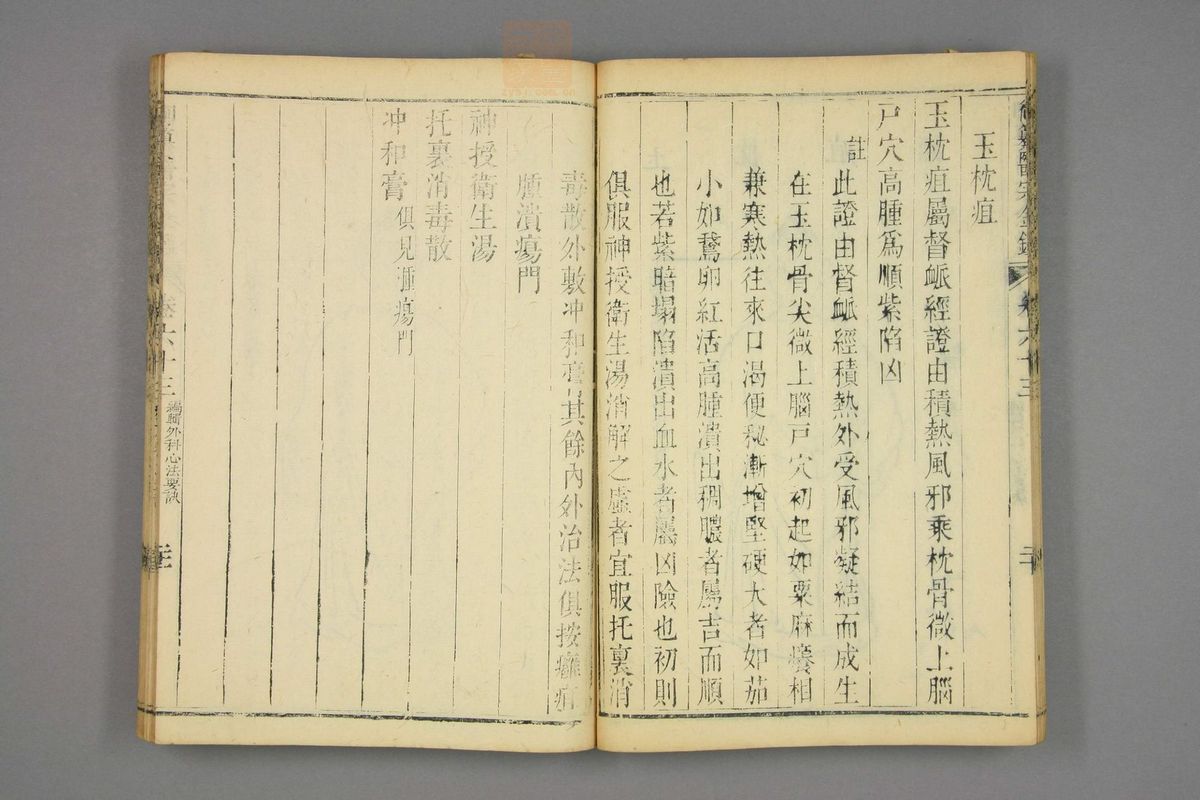 御纂醫宗金鑑 卷六十三
玉枕疽
玉枕疽屬督衇經證由積熱風邪乘枕骨微上腦
戸穴高腫爲順紫陷凶
註
此證由督衇經積熱外受風邪凝結而成生
在玉枕骨尖微上腦戸穴初起如粟麻癢相
兼寒熱往來口渴便秘漸增堅硬大者如茄
小如鵞卵紅活高腫潰出稠膿者屬吉而順
也若紫暗塌陷潰出血水者屬凶險也初則
俱服神授衛生湯消解之虛者宜服托裏消
毒散外敷冲和膏其餘內外治法俱按癰疽
腫潰瘍門
神授衛生湯
托裏消毒散
冲和膏 俱見腫瘍門
卷六十三 編輯外科心法要訣
zysj.com.cn